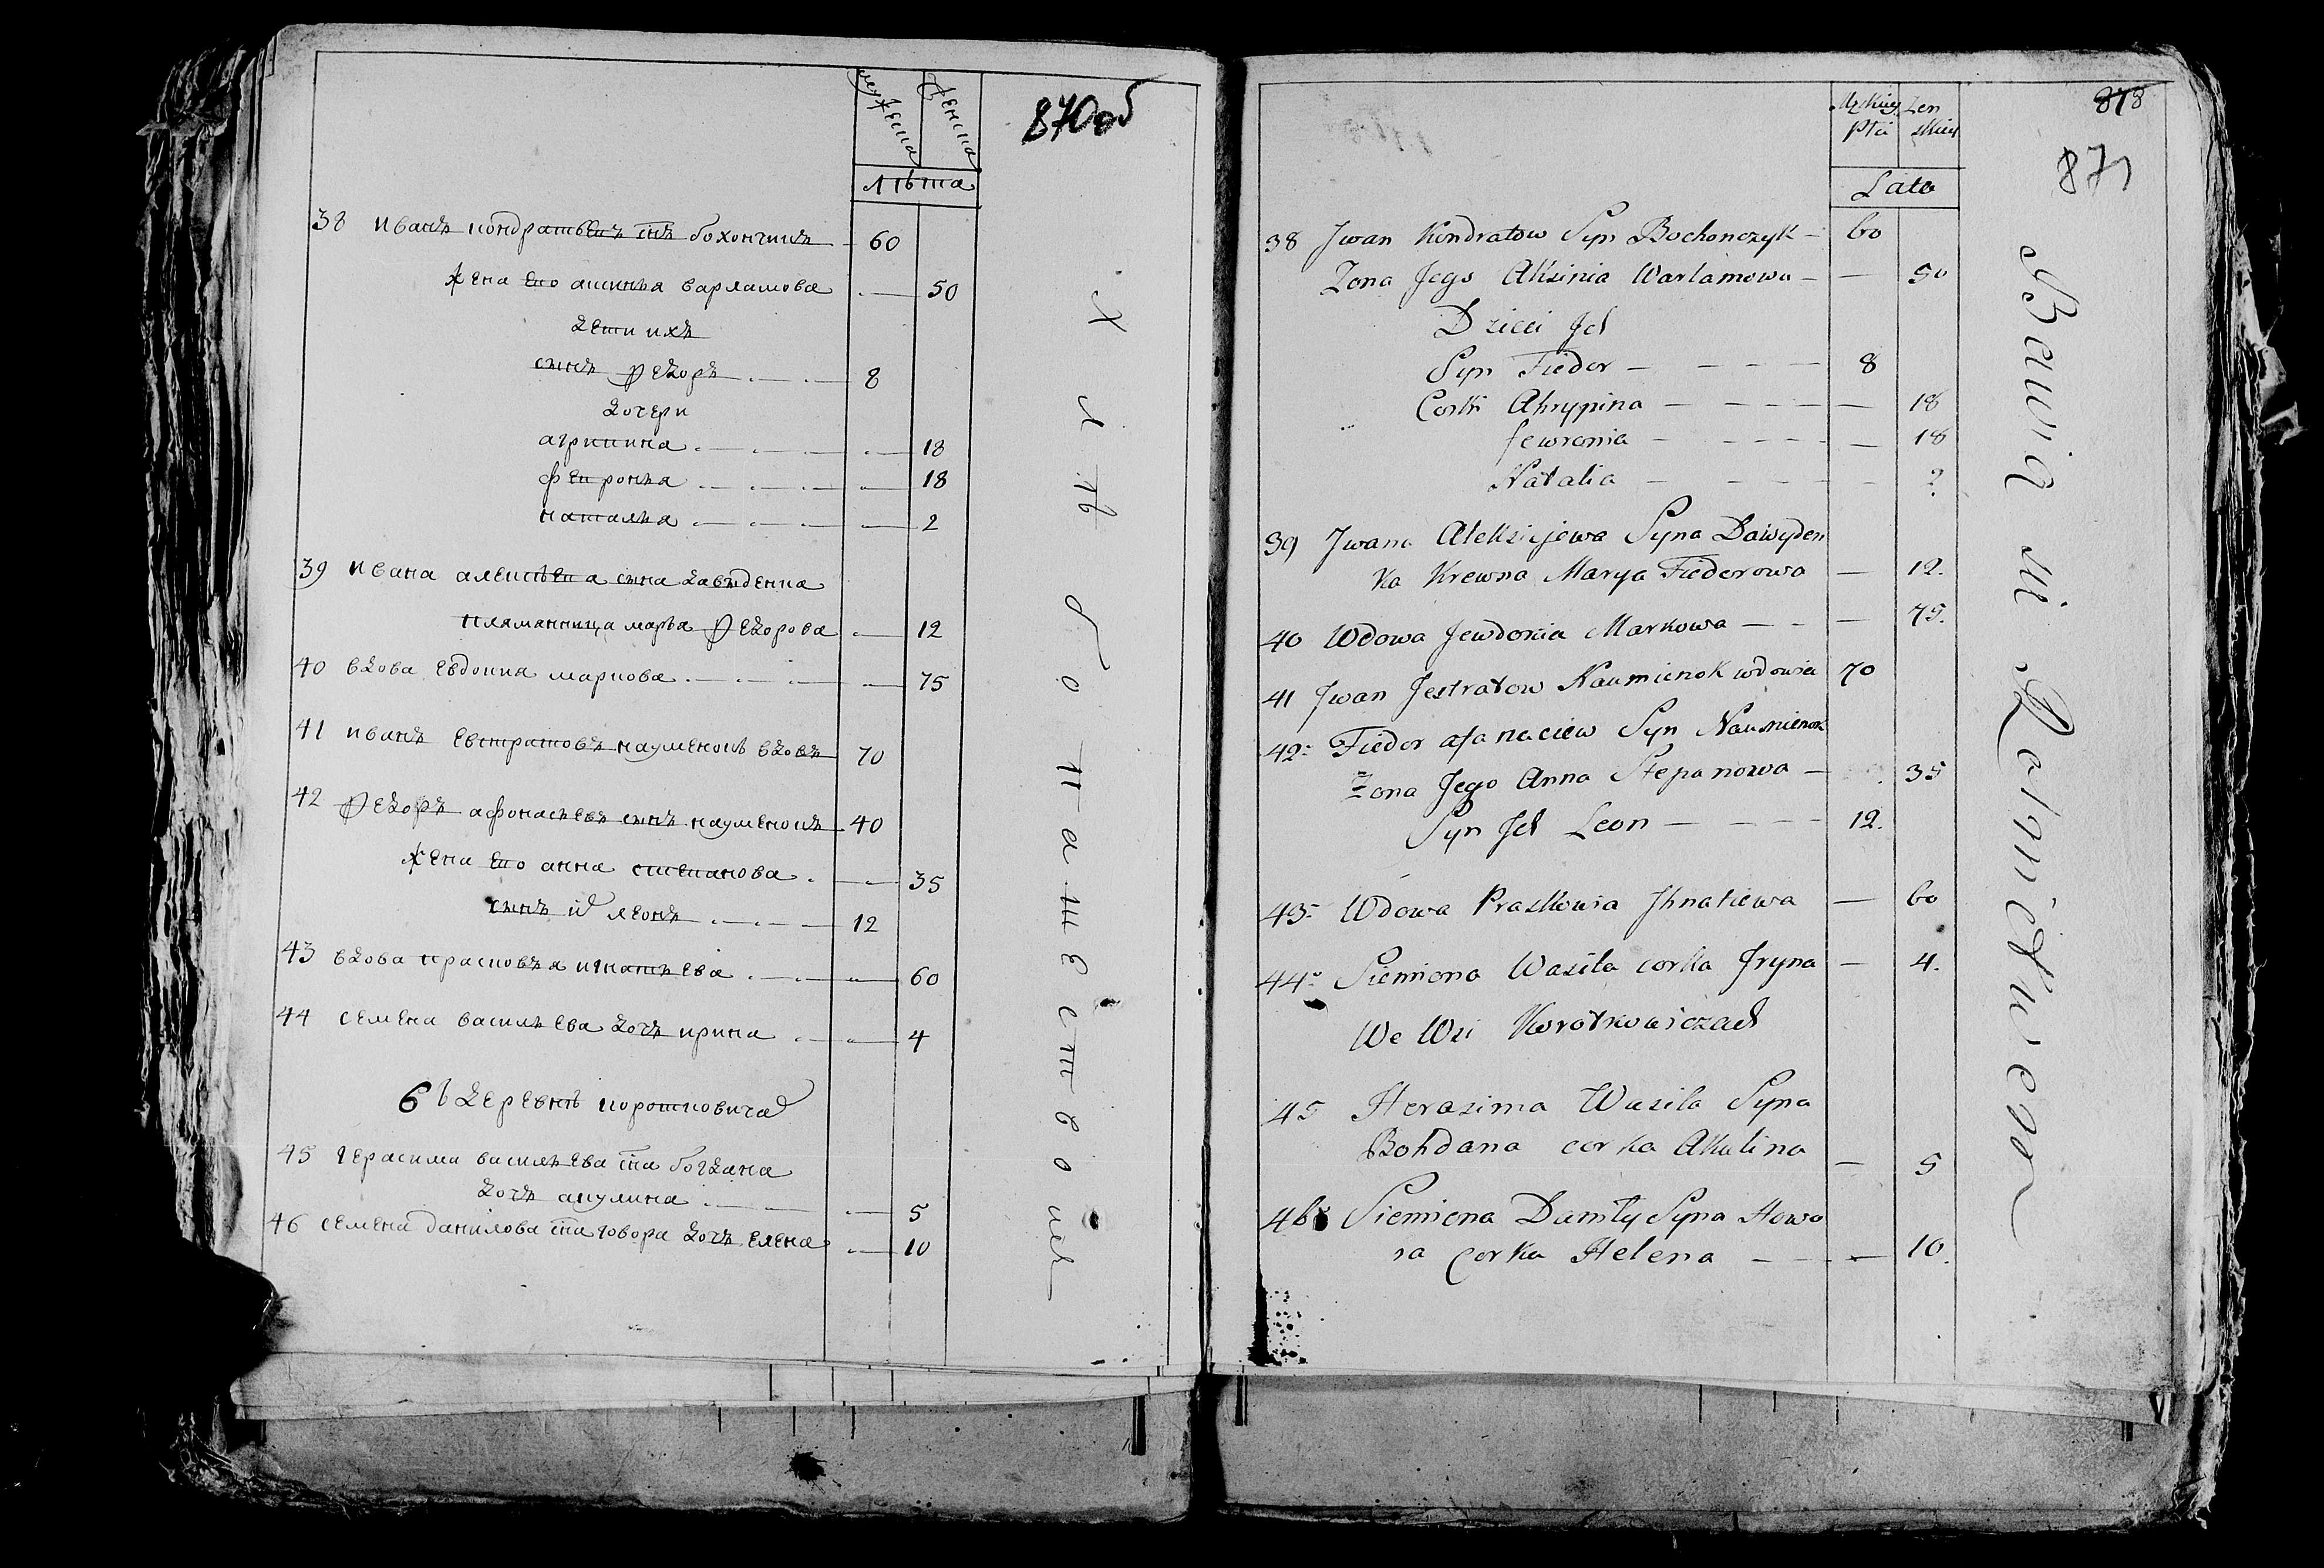 мужеска
женска
870об
лѣта
38 иванъ кондратьевъ снъ бохончикъ 60
жена ево аксинья варламова 50
дети ихъ
сынъ федоръ 8
дочери
агрипина 18
февронья 18
наталья 2
39 ивана алексѣева сына давыденка
племянница марья федорова 12
40 вдова евдокия маркова 75
41 иванъ евстратовъ науменокъ вдовъ 70
42 федоръ афонасьевъ сынъ науменокъ 40
жена ево анна степанова 35
сынъ их леонъ 12
43 вдова прасковья игнатьева 60
44 семена васильева дочь ирина 4
въ деревнѣ коротковичах
45 герасима васильева сна богдана
дочь акулина 5
46 семена данилова сна говора дочь елена 10
хлѣбопашеством
878
871
Mzkiey Płci
Zenskiey
Lata
38 Jwan Kondratow Syn Bochonczyk 60
Zona Jego Aksinia Warlamowa 50
Dzieci Jch
Syn Fiedor 8
Corki Ahrypina 18
Jewronia 18
Natalia 2
39 Jwana Aleksiejewa Syna Dawyden
ka Krewna Marya Fiedorowa 12.
40 Wdowa Jewdokia Markowa 75.
41 Jwan Jestratow Naumienok wdowiec 70
42 Fiedor afanaciew Syn Naumienok
Zona Jego Anna Stepanowa 35
Syn Jch Leon 12.
43 Wdowa Praskowia Jhnatiewa 60
44 Siemiona Wasila corka Jryna 4.
We Wsi Korotkowiczach
45 Herasima Wasila Syna
Bohdana corka Akulina 5
46 Siemiona Daniły Syna Howo
ra Corka Helena 10.
Bawią się Rolnictwem